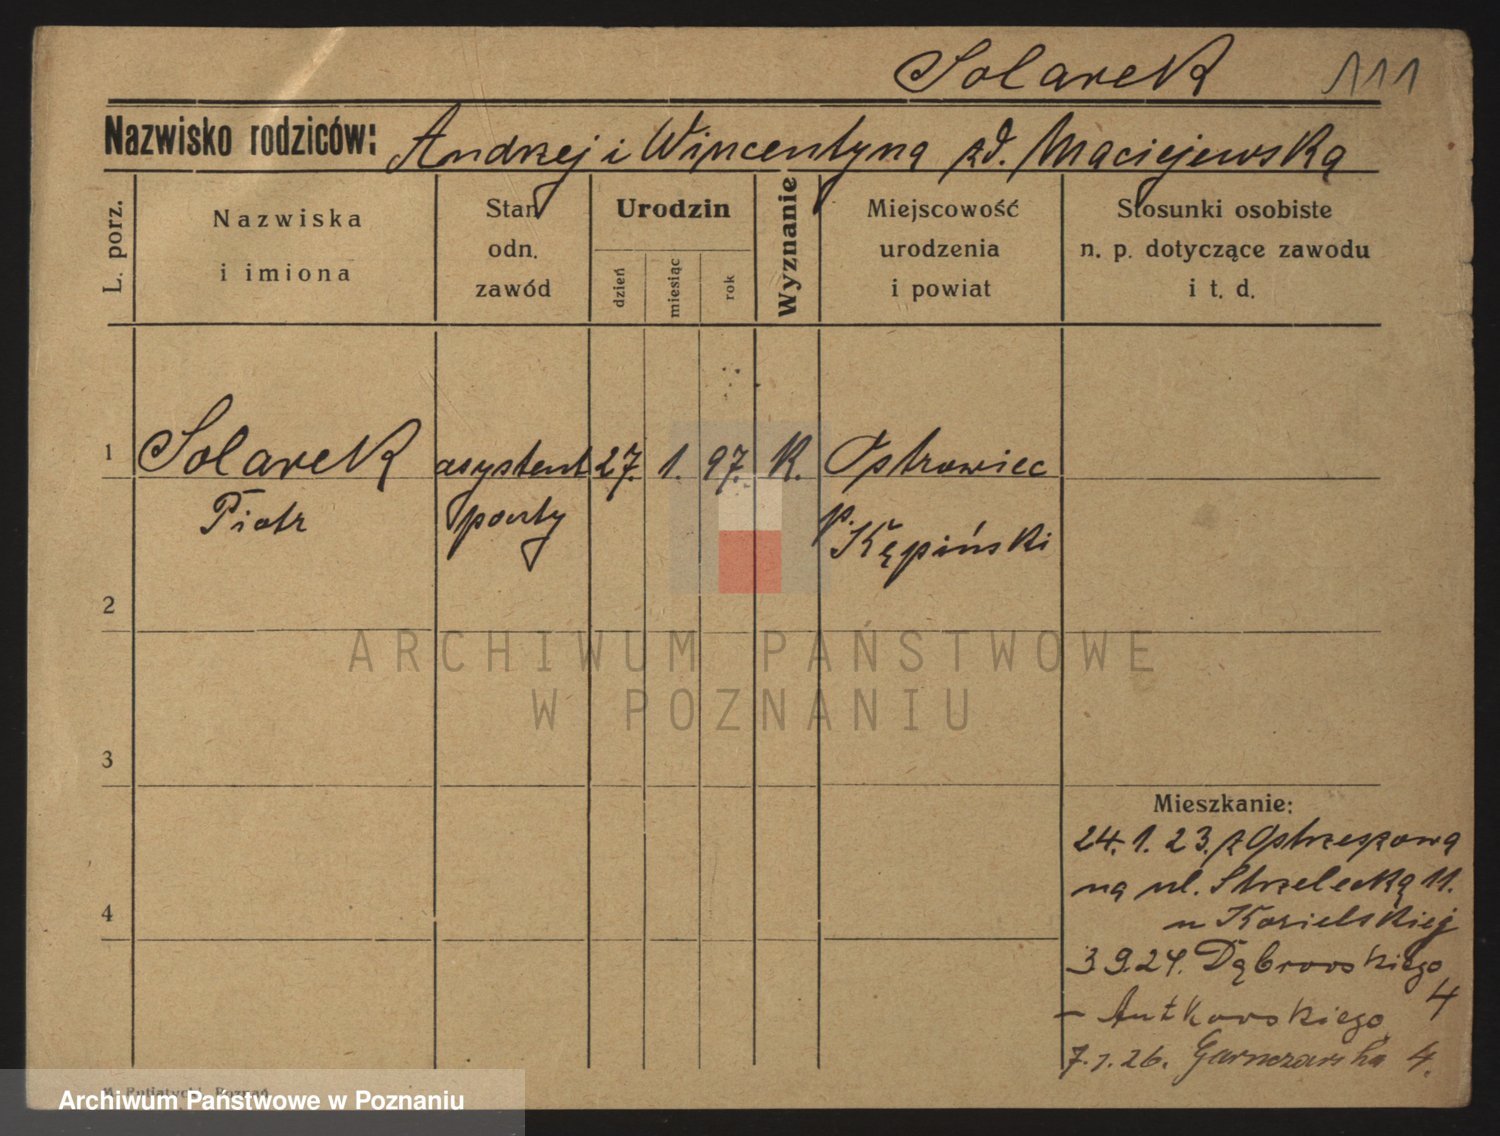 Solarek 111
Nazwisko rodziców: Andrzej i Wincentyna zd. Maciejewska
L. porz.
Nazwiska
i imiona
Stan
odn.
zawód
Urodzin
dzień
miesiąc
rok
Wyznanie
Miejscowość
urodzenia
i powiat
Stosunki osobiste
n. p. dotyczące zawodu
i t. d.
1 Solarek asystent 27. 1. 97. K. Ostrowiec
Piotr poczty p. Kępiński
2
ARCHIWUM PAŃSTWOWE
W POZNANIU
3
Mieszkanie:
24. 1. 23. z Ostrzeszowa
na ul. Strzelecką 11.
u Kozielskiej
4
3 9.24. Dąbrowskiego 4
- Autkowskiego
7.1.26. Garnczarska 4.
Poznań
Archiwum Państwowe w Poznaniu